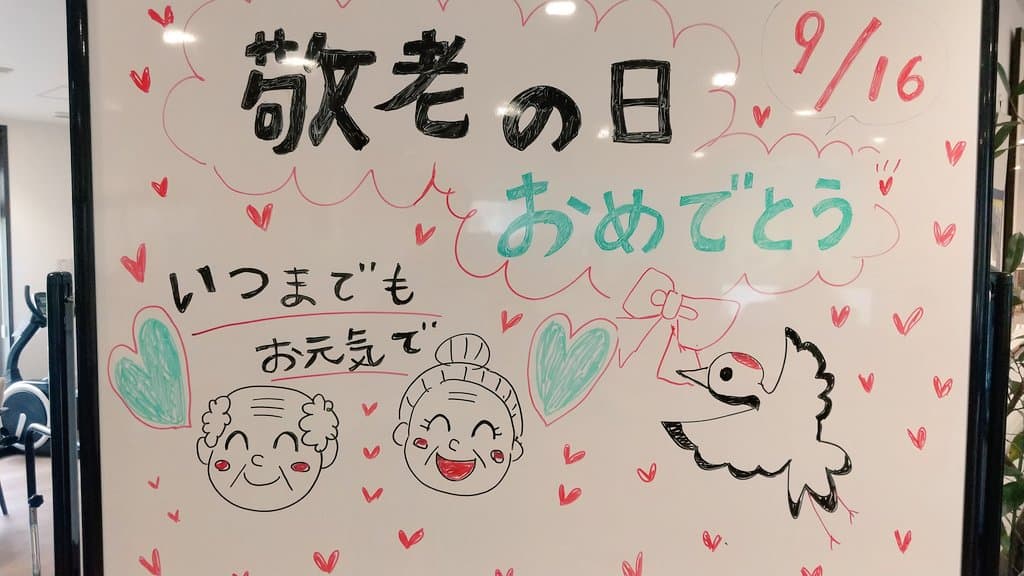 敬老の日
9/16
おめでとう
いつまでも
お元気で